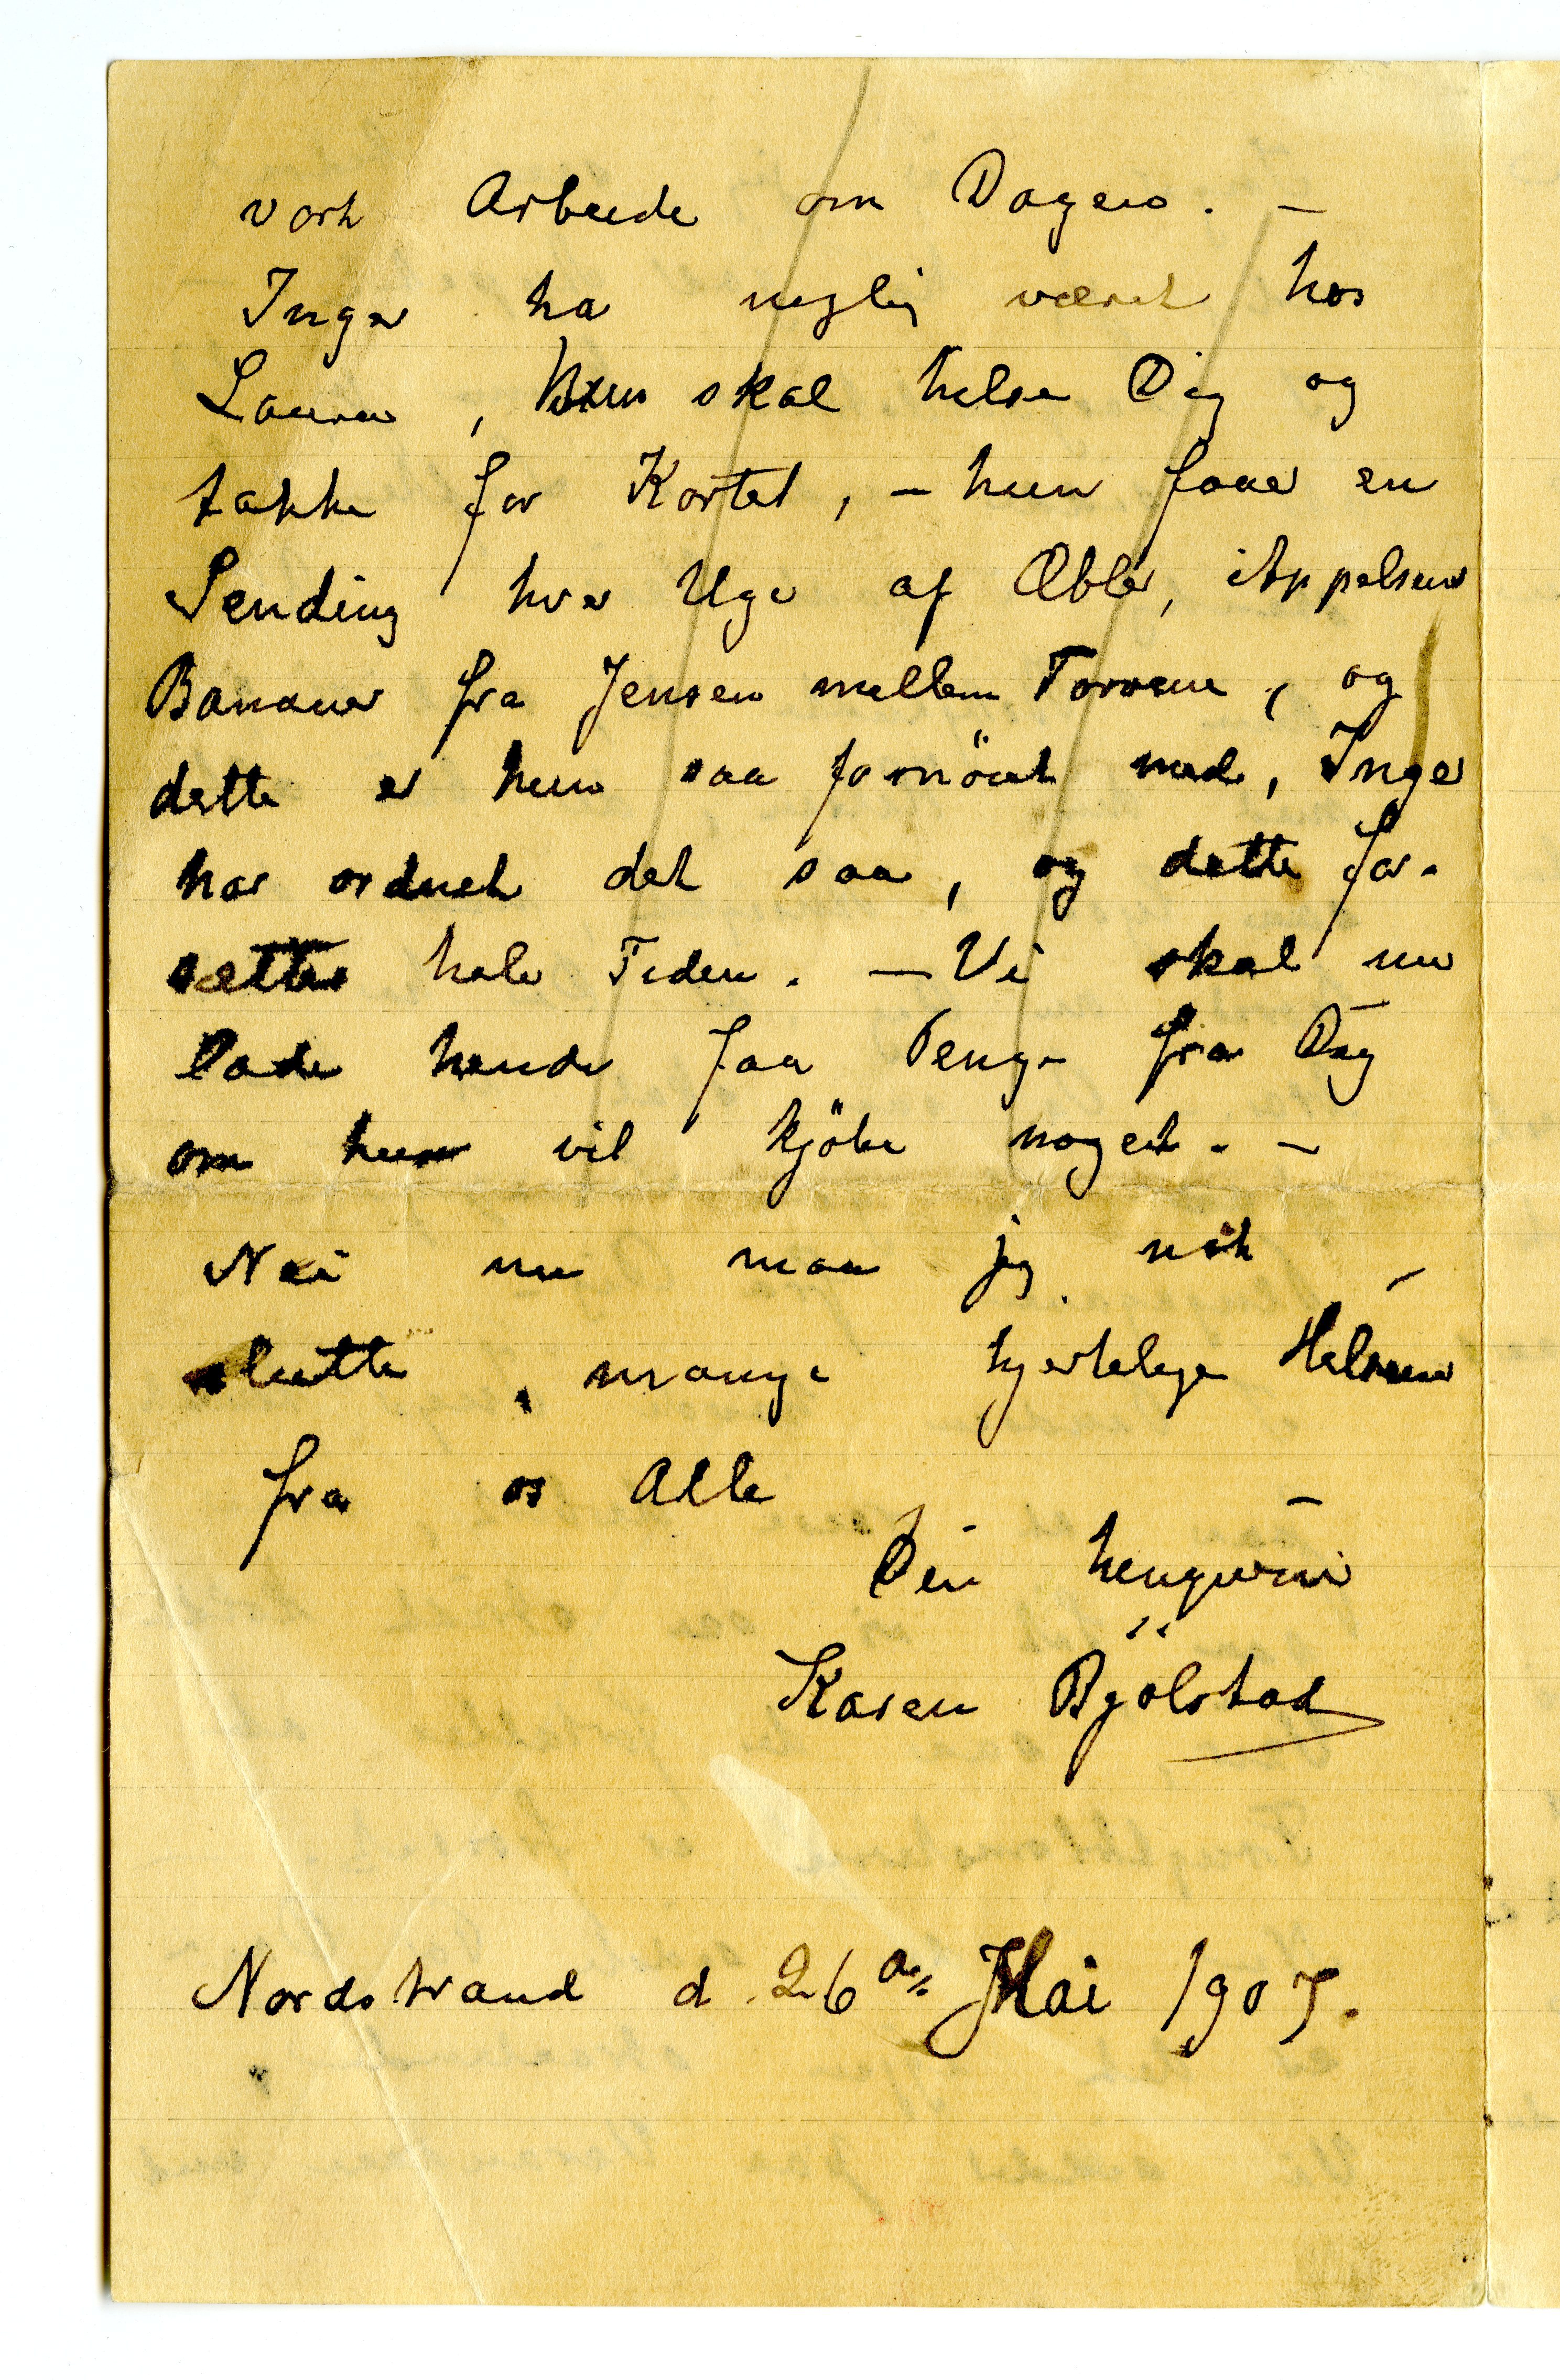 vort Arbeide om Dagen. —
Inger ha nylig været hos
Laura, hun skal hilse Dig og
takke for Kortet, — hun faar en
Sending hver Uge af Æbler, Appelsiner
Bananer fra Jensen mellem Torvene, og
dette er hun saa fornöiet med, Inger
har ordnet det saa, og dette for-
sættes hele Tiden. — Vi skal nu
lade hende faa Penge fra Dig
om hun vil kjöbe noget. —
Nei nu maa jeg nok
slutte, mange hjertelige Hilsener
fra os Alle
Din hengivne
Karen Bjölstad
Nordstrand d 26de Mai 1907.